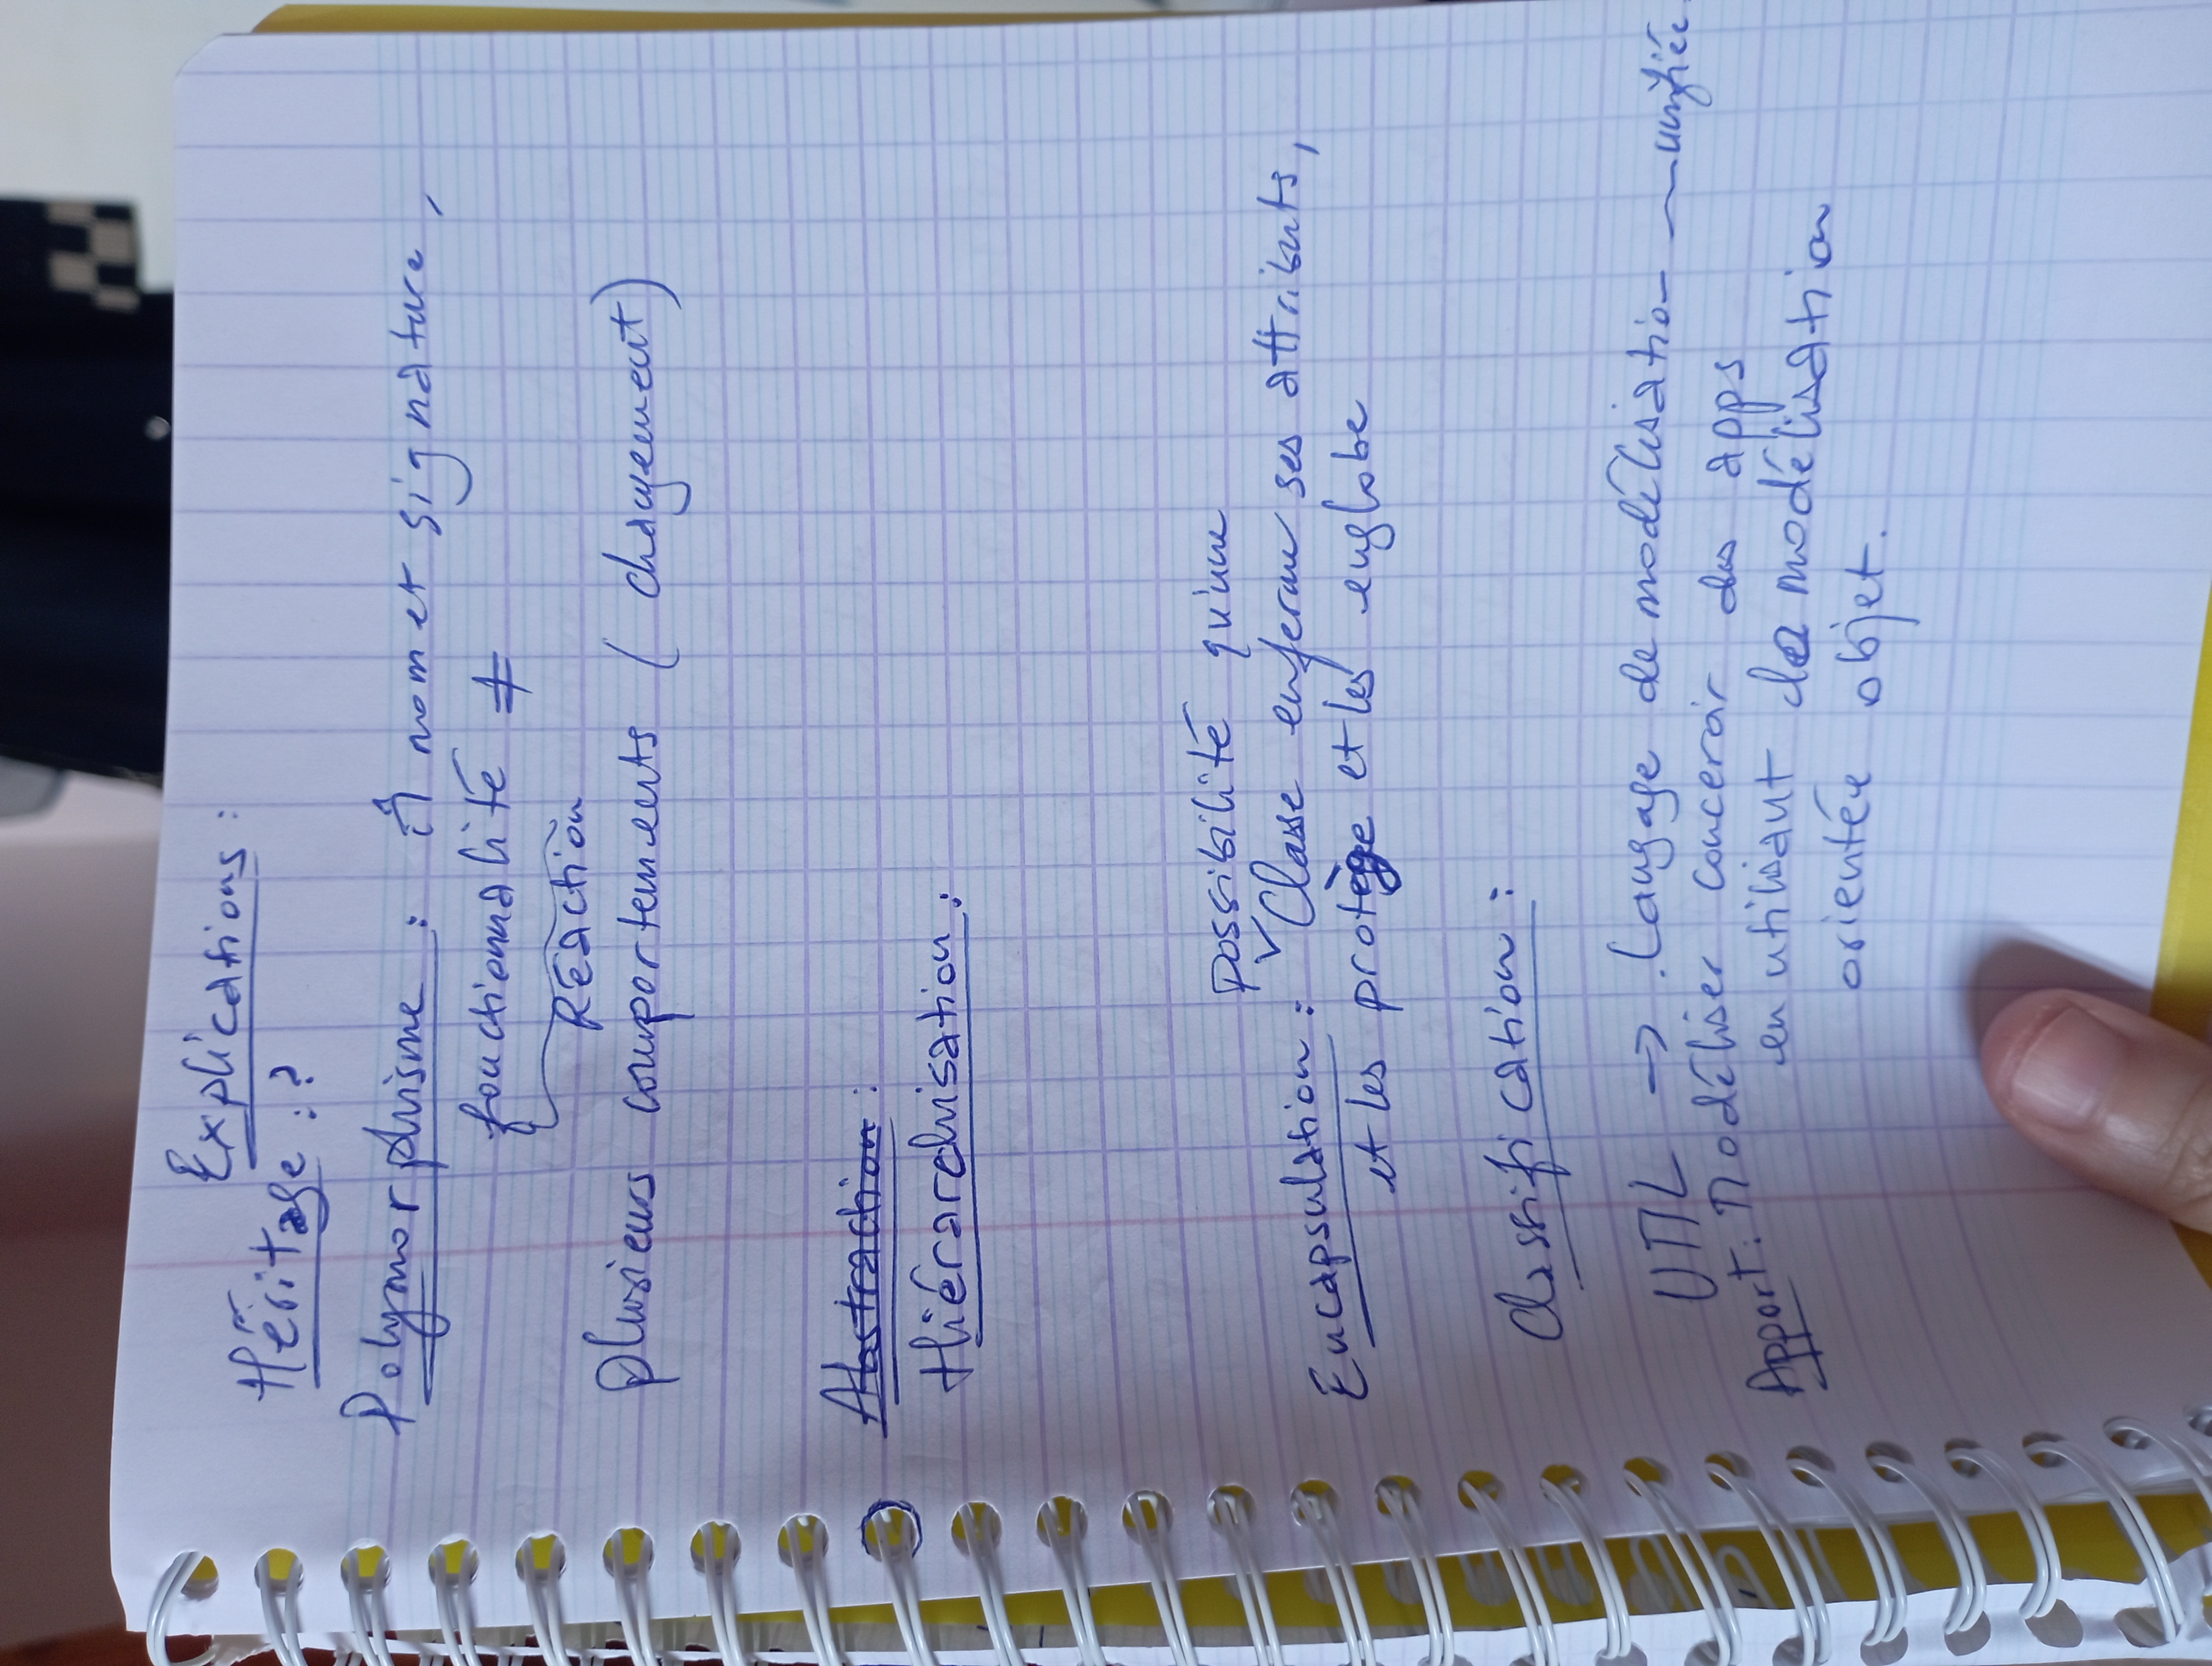 Explications :
Héritage : ?
Polymorphisme : m̂ nom et signature,
fonctionnalité ≠
Réaction
plusieurs comportements ( changement)
Abstraction :
Hiérarchisation :
possibilité qu'une
Encapsulation : Classe enferme ses attributs,
et les protège et les englobe
Classification :
UML → Langage de modélisation unifiée
Apport : Modéliser concevoir des apps
en utilisant la modélisation
orientée objet.